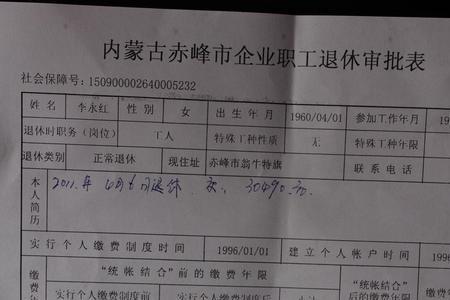 内蒙古赤峰市企业职工退休审批表
社会保障号: 150900002640005232
姓名 李永红 性别 女 出生年月 1960/04/01 参加工作年月 19
退休时职务(岗位) 工人 特殊工种性质 无 特殊工种年限
退休类别 正常退休 现住址 赤峰市翁牛特旗 联系电话
本人简历 2011.年 月6日退休 30490.元.
实行个人缴费制度时间 1996/01/01 建立个人帐户时间 1996
缴费年 “统帐结合”前的缴费年限 “统帐结合”后的缴费年限
实行个人缴费制度前 实行个人缴费制度后